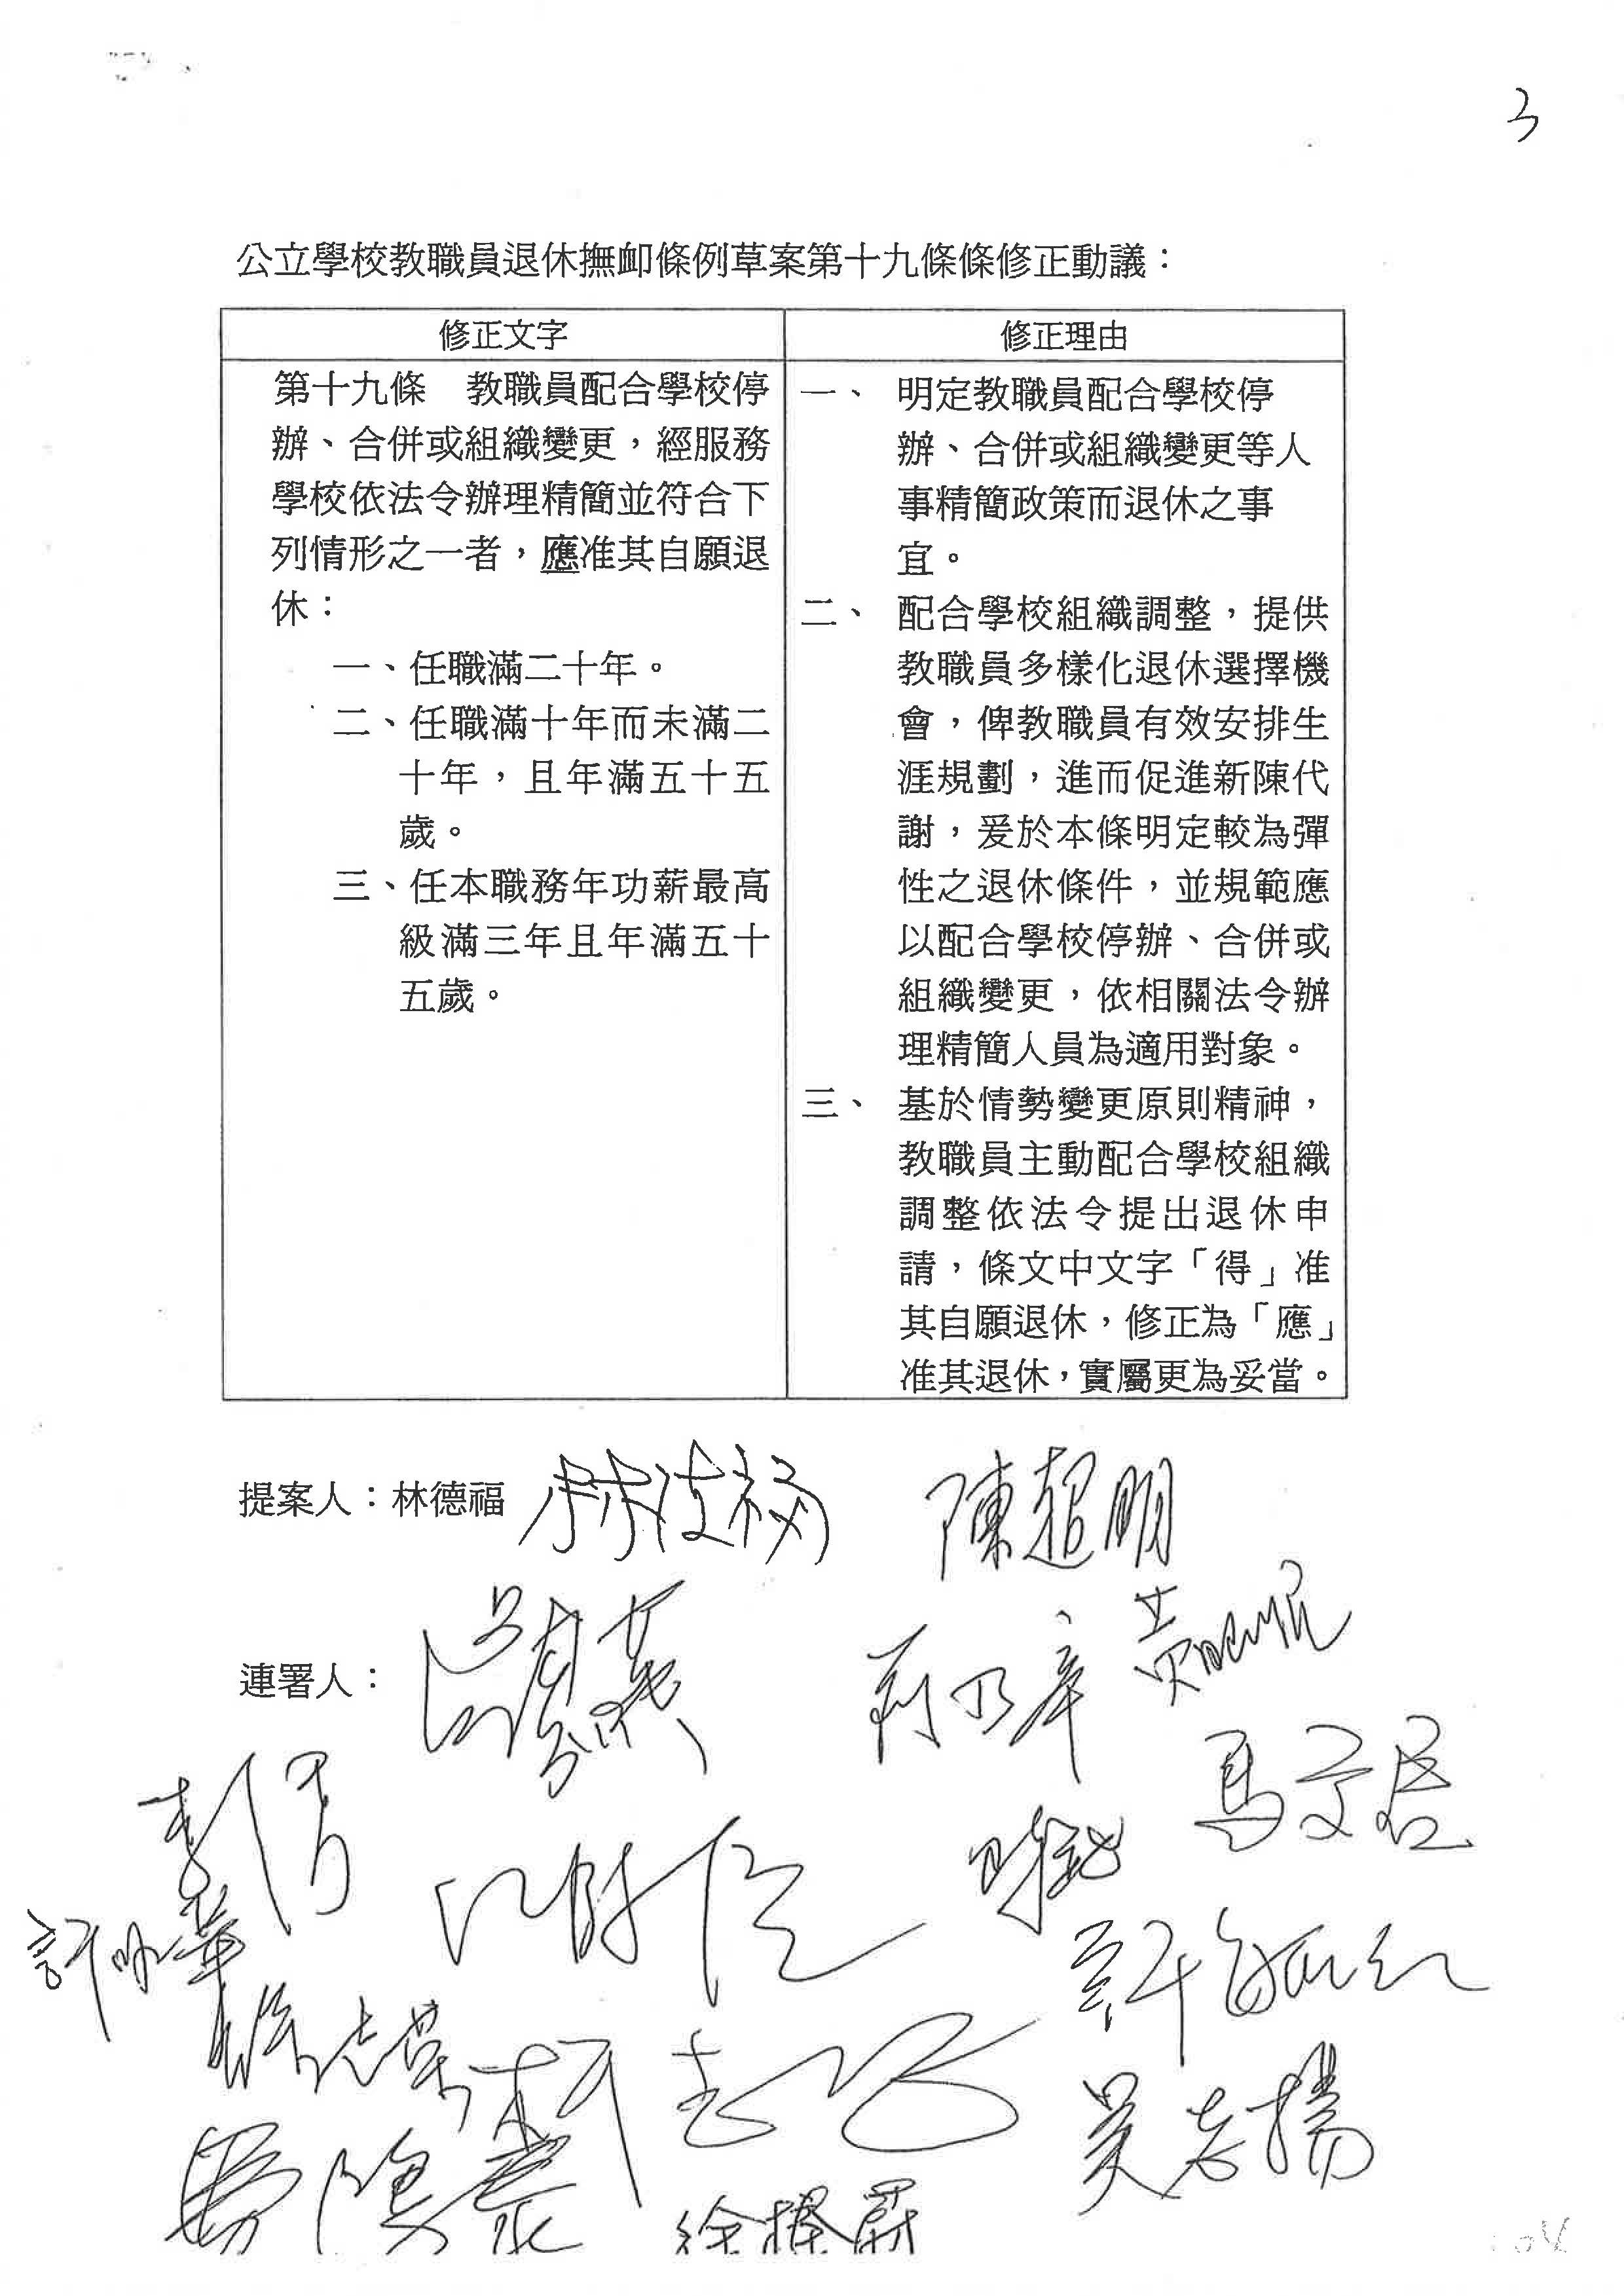 3
公立學校教職員退休撫卹條例草案第十九條條修正動議：
修正文字
第十九條　教職員配合學校停
辦、合併或組織變更，經服務
學校依法令辦理精簡並符合下
列情形之一者，應准其自願退
休：
一、任職滿二十年。
二、任職滿十年而未滿二
十年，且年滿五十五
歲。
三、任本職務年功薪最高
級滿三年且年滿五十
五歲。
修正理由
一、明定教職員配合學校停
辦、合併或組織變更等人
事精簡政策而退休之事
宜。
二、配合學校組織調整，提供
教職員多樣化退休選擇機
會，俾教職員有效安排生
涯規劃，進而促進新陳代
謝，爰於本條明定較為彈
性之退休條件，並規範應
以配合學校停辦、合併或
組織變更，依相關法令辦
理精簡人員為適用對象。
三、基於情勢變更原則精神，
教職員主動配合學校組織
調整依法令提出退休申
請，條文中文字「得」准
其自願退休，修正為「應」
准其退休，實屬更為妥當。
提案人：林德福 林德福 陳超明
連署人：
馬文君
許毓仁
徐志榮
吳志揚
徐榛蔚